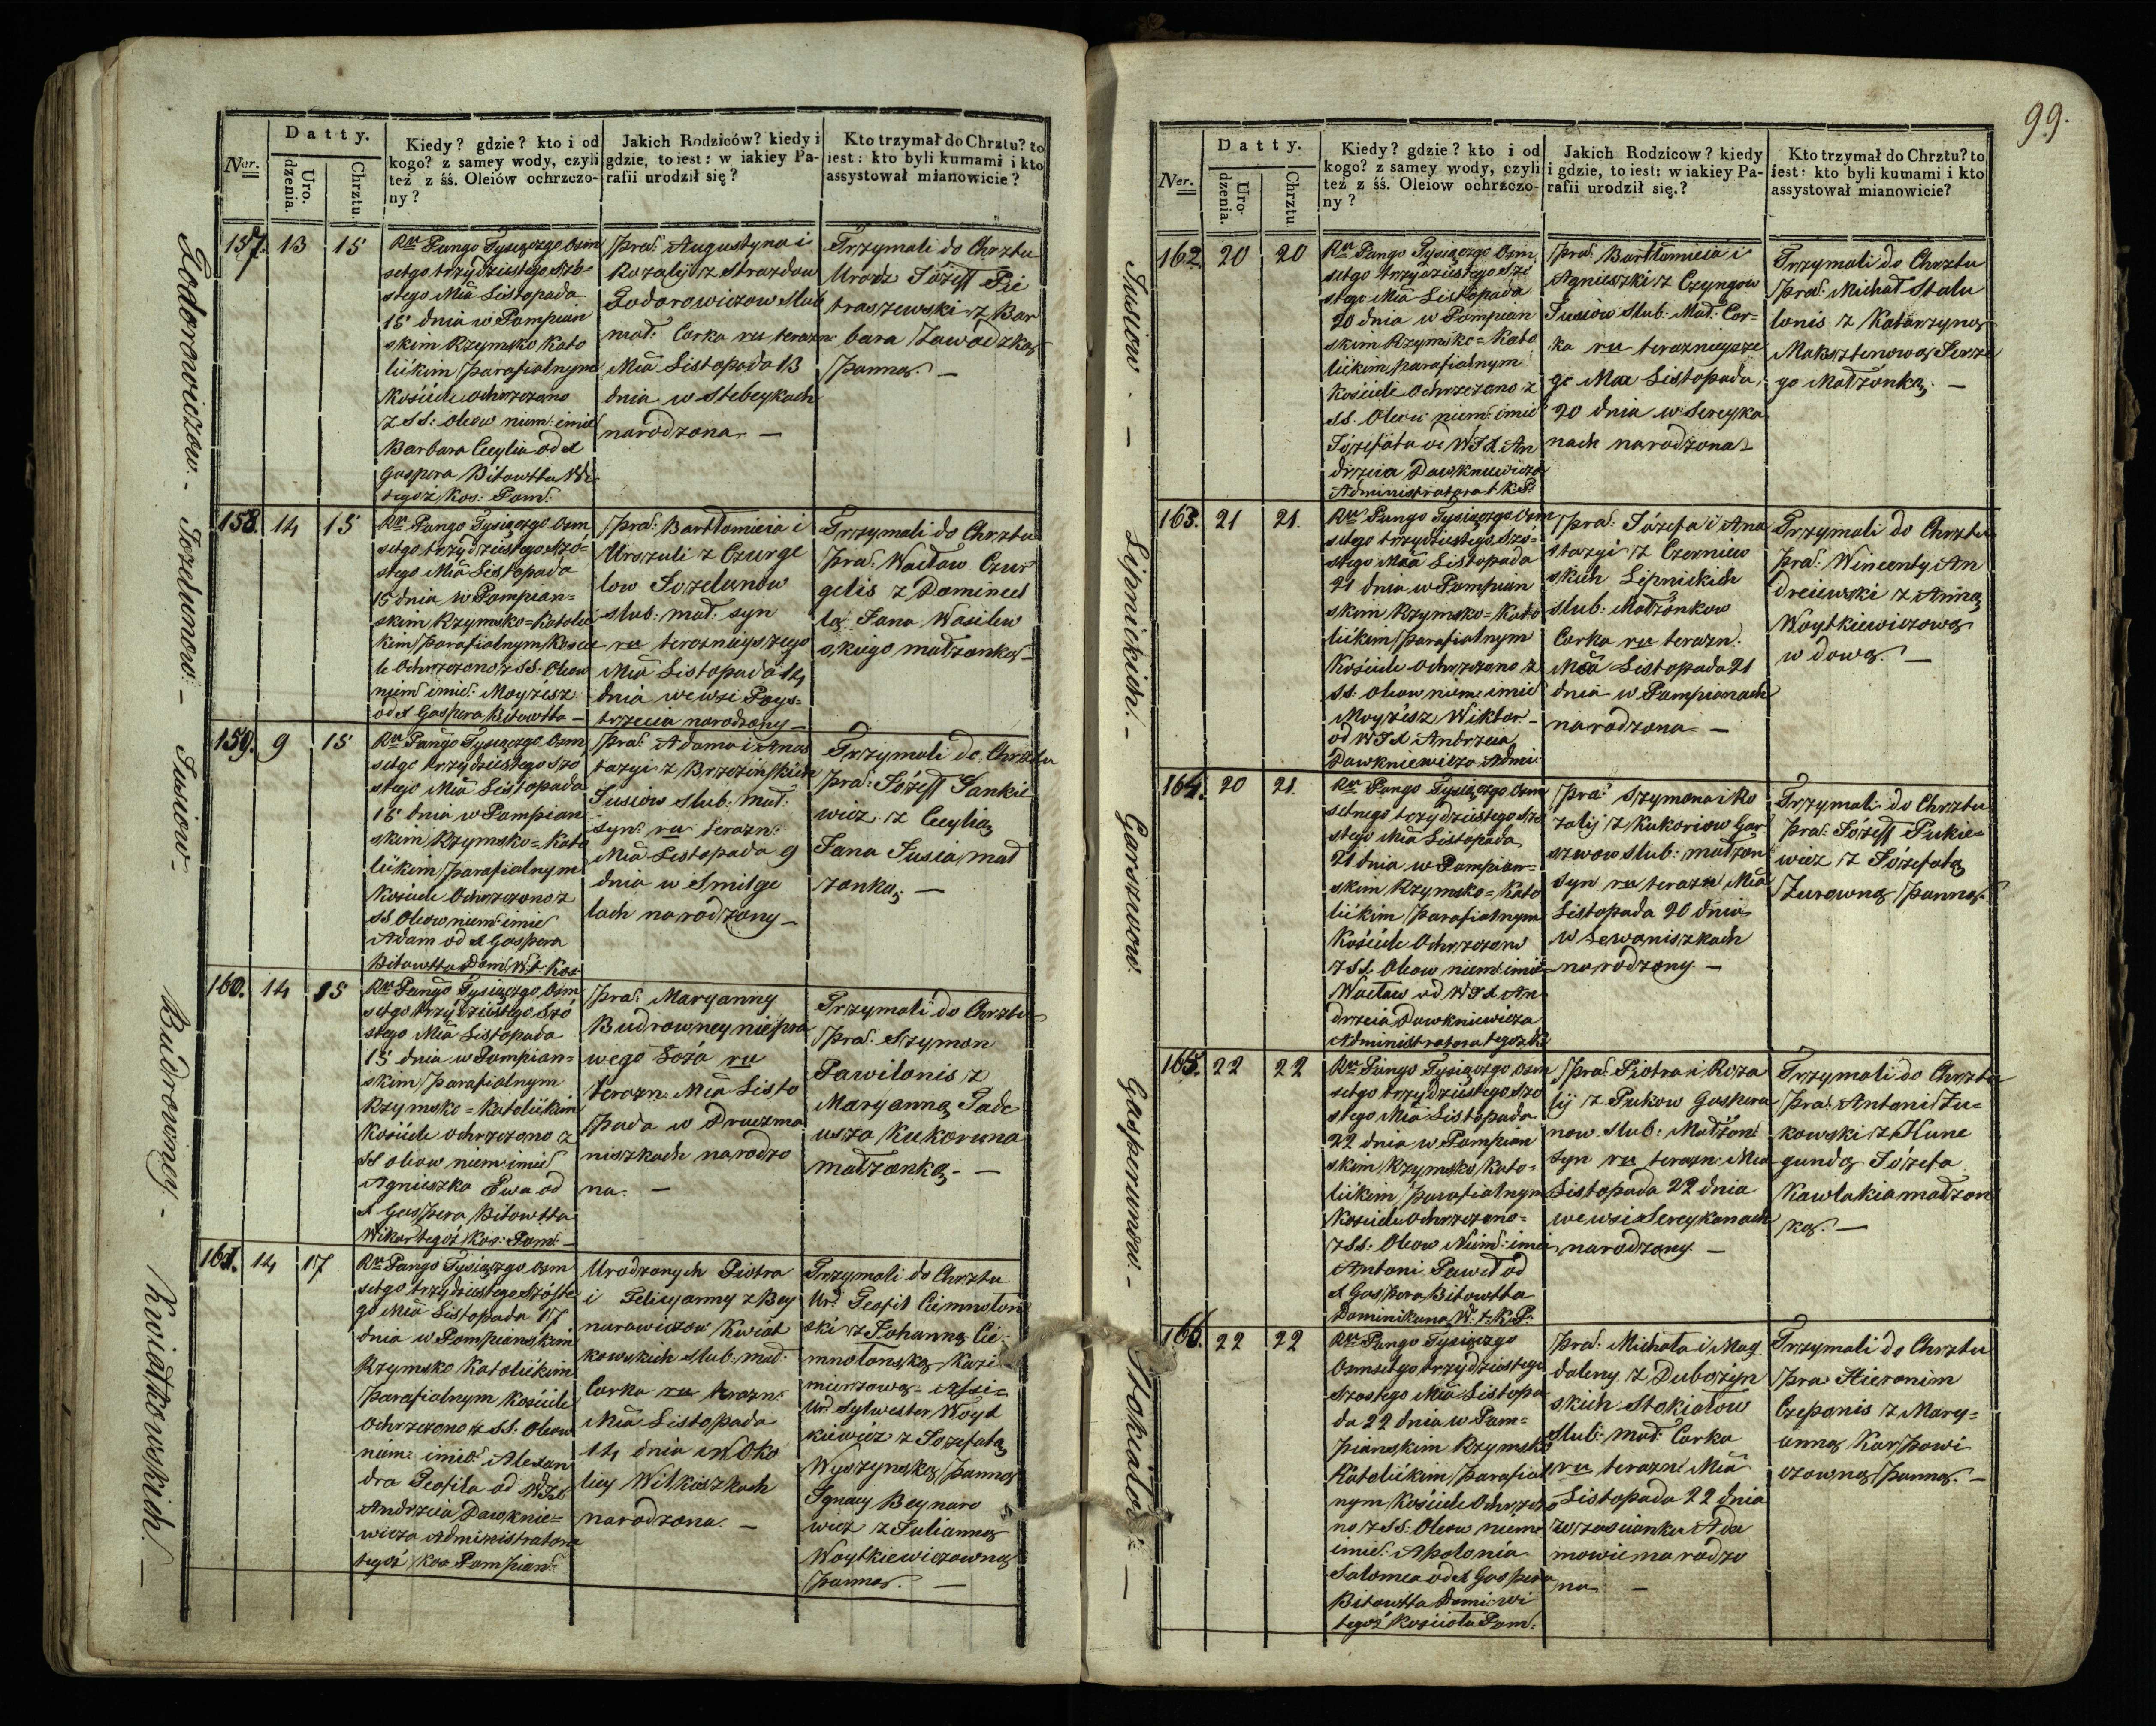 99.
Datty.
Ner.
Uro.
dzenia.
Chrztu.
Kiedy? gdzie? kto i od
kogo? z samey wody, czyli
też z śś. Oleiów ochrzczo-
ny?
Jakich Rodziców? kiedy i
gdzie, to iest: w iakiey Pa-
rafii urodził się?
Kto trzymał do Chrztu? to
iest: kto byli kumami i kto
assystował mianowicie?
157. 13 15
Ru Pango Tysiączgo Osm
setgo trzydziestego Szó-
stego Mia Listopada
15 dnia w Pompian
skim Rzymsko Kato
lickim parafialnym
Kościele ochrzczono
z SS: oleow niem: imie
Barbara Cecylia od X
Gaspera Bitowtta Wi
tegoż Kos: Pom:
Prac: Augustyna i
Rozalij z Strazdow
Zodorowiczow Slub
mał: Corka ru terazn:
Mia Listopada 13
dnia w Stebeykach
narodzona —
Trzymali do Chrztu
Urodz Józeff Pie
traszewski z Bar
bara Zawadzką
panną. —
158. 14 15
Ru Pango Tysiączgo Osm
setgo trzydziestego Szó-
stego Mia Listopada
15 dnia w Pompian=
skim Rzymsko=Katolic
kim parafialnym Koscie
le Ochrzczono z SS. Oleow
niem imie: Moyżesz
od X Gaspera Bitowtta —
Prac: Bartłomieia i
Urszuli z Czurge
low Jozelunow
slub: mał. syn
ru terazneyszego
Mia Listopada 14
dnia we wsi Poys=
trzecia narodzony —
Trzymali do Chrztu
Prac: Wacław Czur
gelis z Domiceel
lą Jana Wasilew
skiego małzonką —
159. 9 15
Ru Pango Tysiączgo Osm
setgo trzydziestego Szó
stego Mia Listopada
15 dnia w Pompian
skim Rzymsko=Kato
lickim parafialnym
Kościele Ochrzczono z
SS Oleow niem imie
Adam od X Gaspera
Bitowtta Dom: W. t. Kos:
Prac: Adama i Anas
tazyi z Brzezińskich
Jusiow slub: mał:
syn: ru terazn:
Mia Listopada 9
dnia w Smilge
lach narodzony —
Trzymali do Chrztu
Prac: Józeff Jankie
wicz z Cecylią
Jana Jusia mał
zonką —
160. 14 15
Ru Pango Tysiączgo Osm
setgo trzydziestego Szó
stego Mia Listopada
15 dnia w Pompian=
skim parafialnym
Rzymsko=Katolickim
Kościele ochrzczono z
SS oleow niem: imie
Agnieszka Ewa od
X Gaspera Bitowtta
Wikar tegoż Kos: Pom: —
Prac: Maryanny
Budrowney niepra
wego Łoża ru
terazn: Mia Listo
pada w Draczma
niszkach narodzo
na. —
Trzymali do Chrztu
Prac: Szymon
Pawilonis z
Maryanną Tade
usza Kukoruna
małzonką. —
161. 14 17
Ru Pango Tysiączgo Osm
setgo trzydziestego Szóste
go Mia Listopada 17
dnia w Pompianskim
Rzymsko Katolickim
parafialnym Kościele
ochrzczono z SS. Oleow
niem: imie: Alexan
dra Teofila od WJX
Andrzeia Dawknie=
wicza Administratora
tegoż Kos Pompian:
Urodzonych Piotra
i Felicyanny z Bey
narowiczow Kwiat
kowskich slub: mał:
Corka ru terazn:
Mia Listopada
14 dnia w Oko
licy Wilkiszkach
narodzona. —
Trzymali do Chrztu
Ur: Teofil Ciemnolon
ski z Johanną Cie-
mnolonską Kazi
mierzową — Assi=
Ur: Sylwester Woyt
kiewicz z Jozefatą
Wyszynską panną
Ignacy Beynaro
wicz z Julianną
Woytkiewiczowną
panną. —
Zodorowiczow. — Jozelunow. — Jusiow. — Budrowney. — Kwiatkowskich. —
Datty.
Ner.
Uro-
dzenia.
Chrztu
Kiedy? gdzie? kto i od
kogo? z samey wody, czyli
też z śś. Oleiow ochrzczo-
ny?
Jakich Rodzicow? kiedy
i gdzie, to iest: w iakiey Pa-
rafii urodził się.?
Kto trzymał do Chrztu? to
iest: kto byli kumami i kto
assystował mianowicie?
162. 20 20
Ru Pango Tysiączgo Osm
setgo trzydziestego Szó
stego Mia Listopada
20 dnia w Pompian
skim Rzymsko=Kato
lickim parafialnym
Kościele Ochrzczono z
SS. Oleow niem: imie
Józefata od WJX An
drzeia Dawkniewicza
Administratora t. K. P.
Prac: Bartłomieia i
Agnieszki z Czyngow
Jusiow slub: Mał: Cor=
ka ru teraznieysze
go Mca Listopada
20 dnia w Sereyka
nach narodzona —
Trzymali do Chrztu
Prac: Michał Stalu
lonis z Katarzyną
Maksztenową Jerze
go Małzonką. —
163. 21 21
Ru Pango Tysiączgo Osm
setgo trzydziestego Szo=
stego Mca Listopada
21 dnia w Pompian
skim Rzymsko=Kato
lickim parafialnym
Kościele Ochrzczono z
SS: oleow niem: imie
Moyżesz Wiktor —
od WJX Andrzeia
Dawkniewicza Admi:
Prac: Józefa i Ana
stazyi z Czerniew
skich Lipnickich
slub: Małżonkow
Corka ru terazn:
Mca Listopada 21
dnia w Pompianach
narodzona —
Trzymali do Chrztu
Prac: Wincenty An
dreiewski z Anną
Woytkiewiczową
wdową. —
164. 20 21
Ru Pango Tysiączgo Osm
setnego trzydziestego Szó
stego Mia Listopada
21 dnia w Pompian=
skim Rzymsko=Kato
lickim parafialnym
Kościele Ochrzczono
z SS. Oleow niem: imie
Wacław od WJX An
drzeia Dawkniewicza
Administratora tegoż K
Prac: Szymona i Ro
zalij z Kukoriow Gar
szwow slub: małzon
syn ru terazn: Mia
Listopada 20 dnia
w Lewaniszkach
narodzony. —
Trzymali do Chrztu
Prac: Józeff Pukie=
wicz z Józefatą
Żurowną panną.
165. 22 22
Ru Pango Tysiączgo Osm
setgo trzydziestego Szo
stego Mia Listopada
22 dnia w Pompian
skim Rzymsko Kato=
lickim parafialnym
Kościele Ochrzczono=
z SS: Oleow Niem: imie
Antoni Paweł od
X Gaspera Bitowtta
Dominikana W: t: K: P:
Prac: Piotra i Roza
lij z Pukow Gasperu
now slub: Małżon:
syn ru terazn: Mca
Listopada 22 dnia
we wsi Sereykanach
narodzony. —
Trzymali do Chrztu
Prac: Antoni Żu=
kowski z Kune
gundą Józefa
Kawlakia małzon
ką. —
166. 22 22
Ru Pango Tysiączgo
Osmsetgo trzydziestego
Szostego Mia Listopa
da 22 dnia w Pom=
pianskim Rzymsko
Katolickim Parafial
nym Kościele Ochrzczo
no z SS: Oleow niem:
imie: Apolonia
Salomea od X Gaspera
Bitowtta Domi: wi
tegoż Kościoła Pom:
Prac: Michała i Mag
daleny z Dubożyn
skich Stokiałow
slub: mał: Corka
ru terazn: Mia
Listopada 22 dnia
w zascianku Ada
mowie narodzo
na —
Trzymali do Chrztu
Prac Hieronim
Czeponis z Mary=
anną Karpowi
czowną panną. —
Jusiow. — Lipnickich. — Garszwow. Gasperunow. — Stokiałow. —